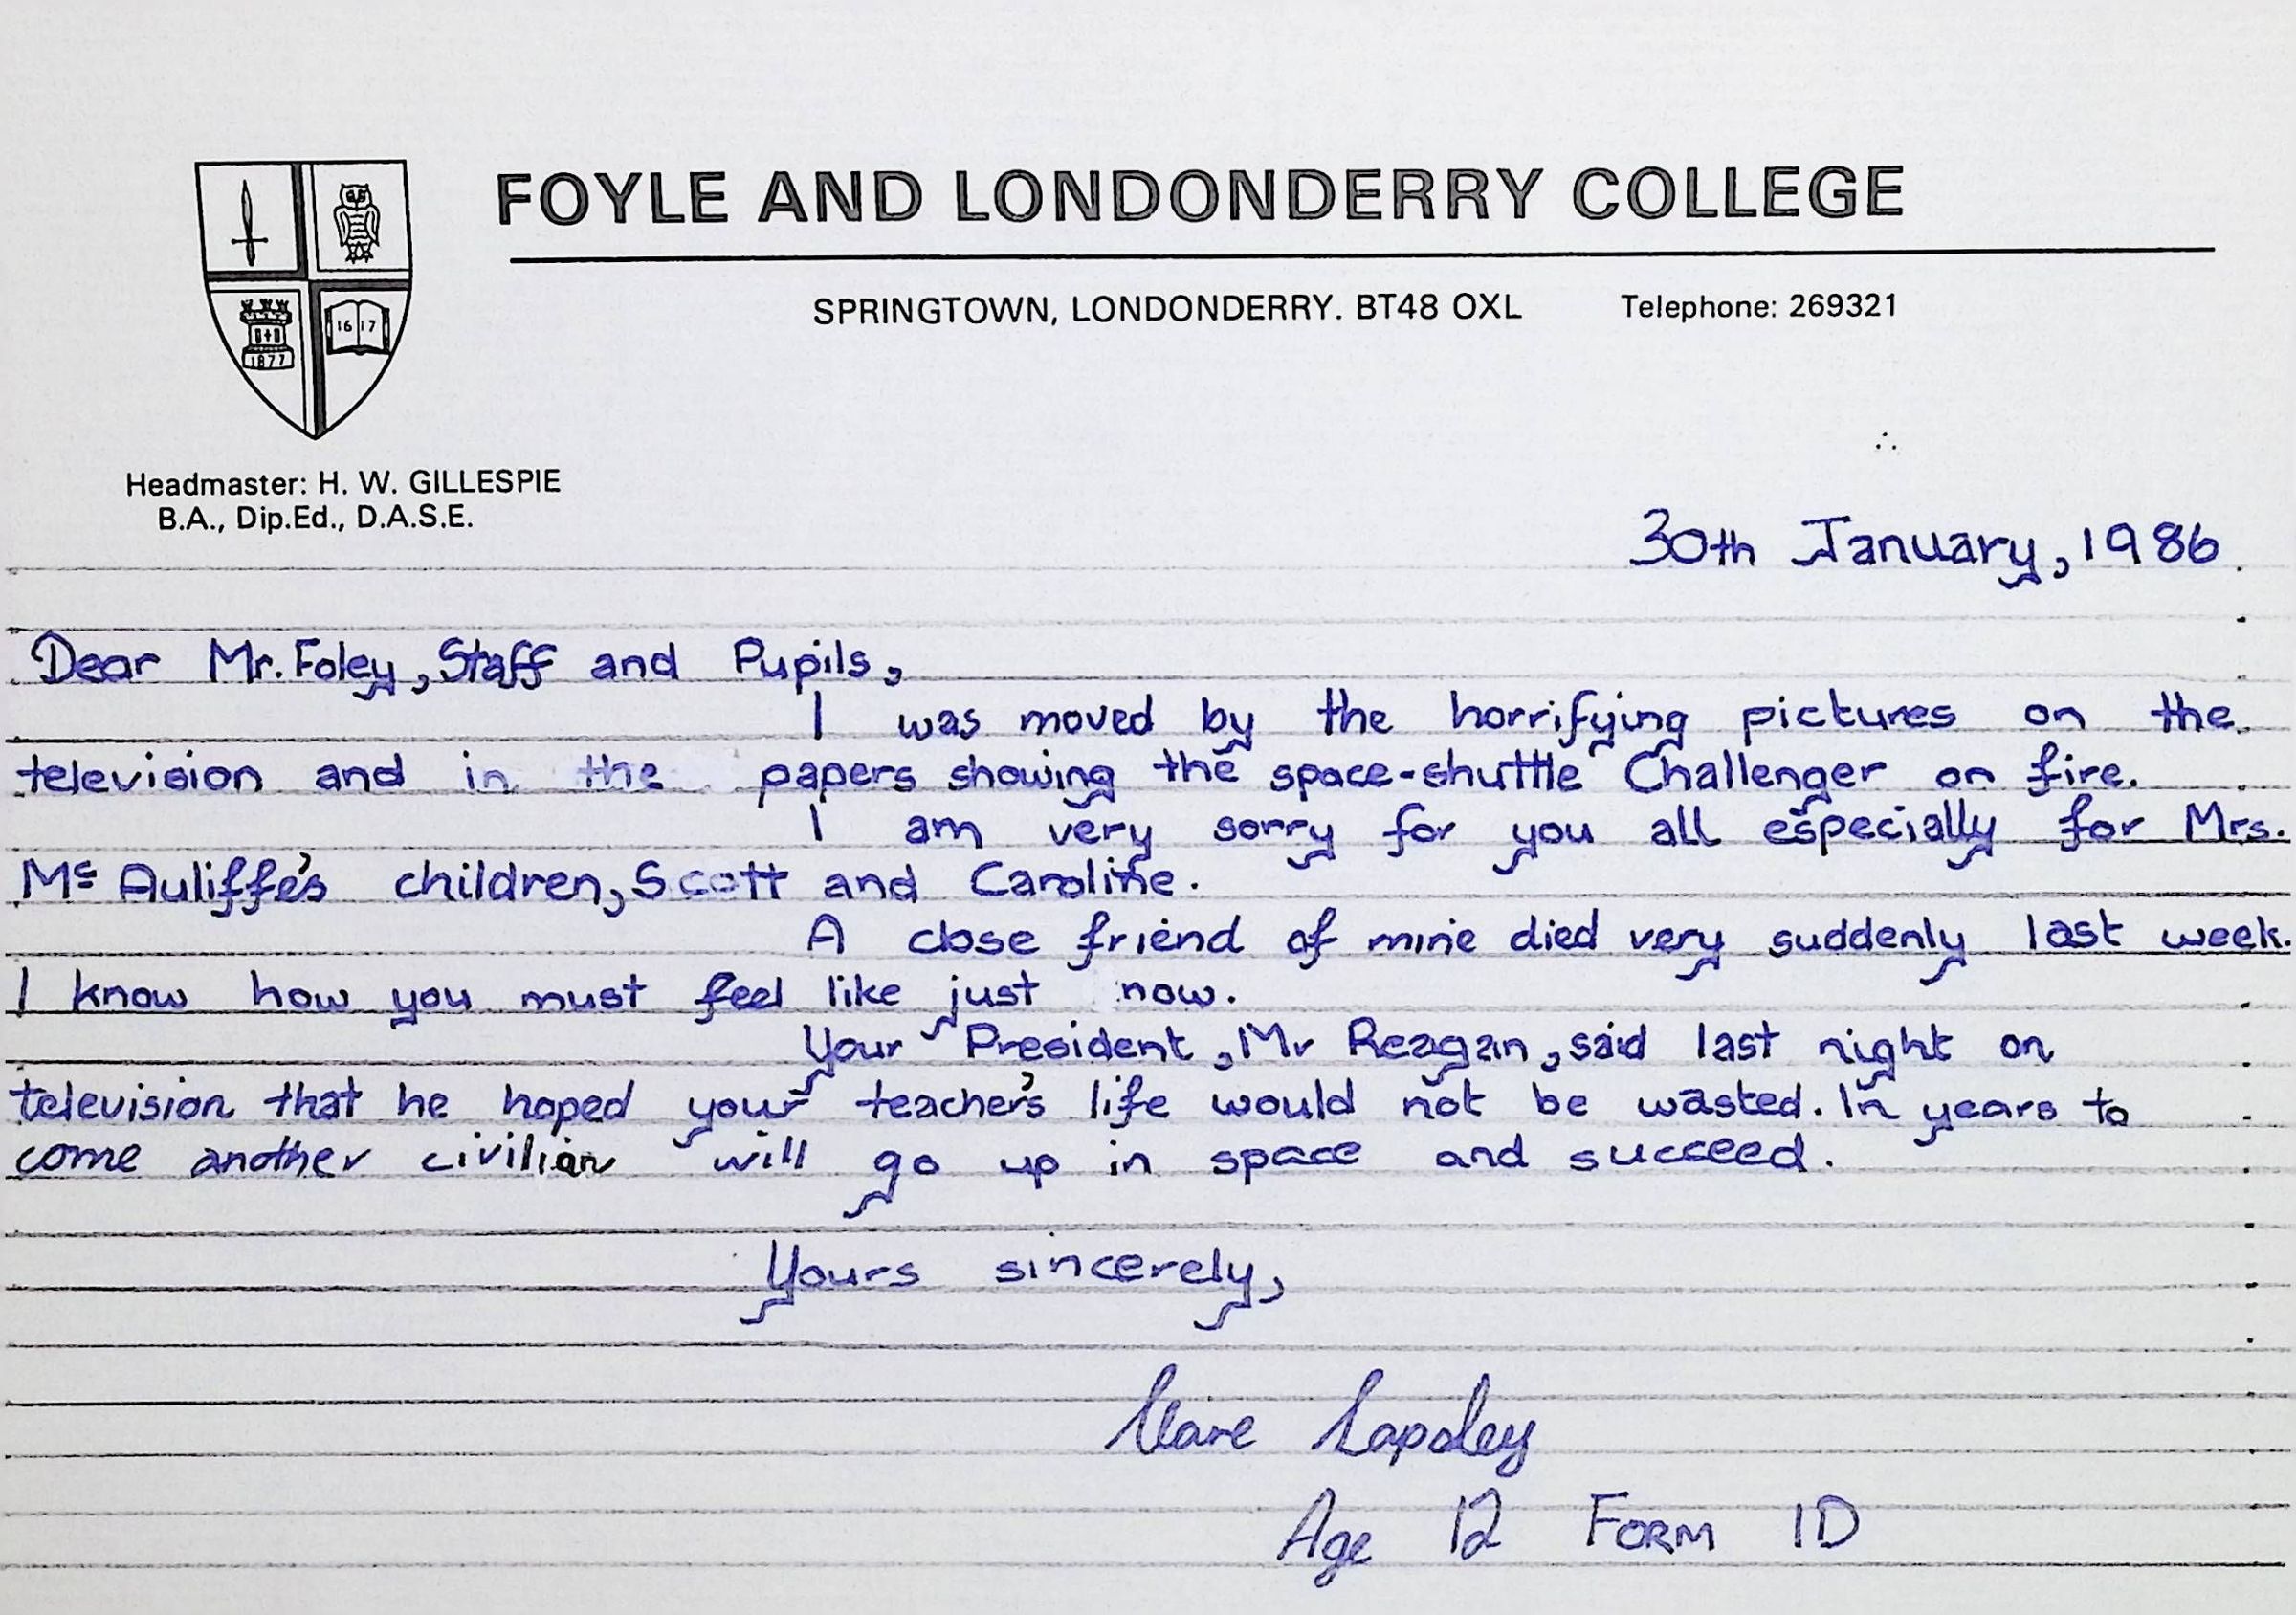 FOYLE AND LONDONDERRY COLLEGE
SPRINGTOWN, LONDONDERRY. BT48 OXL Telephone: 269321
1617
1877
Headmaster: H. W. GILLESPIE
B.A., Dip.Ed., D.A.S.E.
30th January, 1986.
Dear Mr. Foley, Staff and Pupils,
I was moved by the horrifying pictures on the
television and in the papers showing the space-shuttle Challenger on fire.
I am very sorry for you all especially for Mrs.
Mc Auliffe's children, Scott and Caroline.
A close friend of mine died very suddenly last week.
I know how you must feel like just now.
Your President, Mr Reagan, said last night on
television that he hoped your teacher's life would not be wasted. In years to
come another civilian will go up in space and succeed.
Yours sincerely,
Clare Lapsley
Age 12 FORM 1D